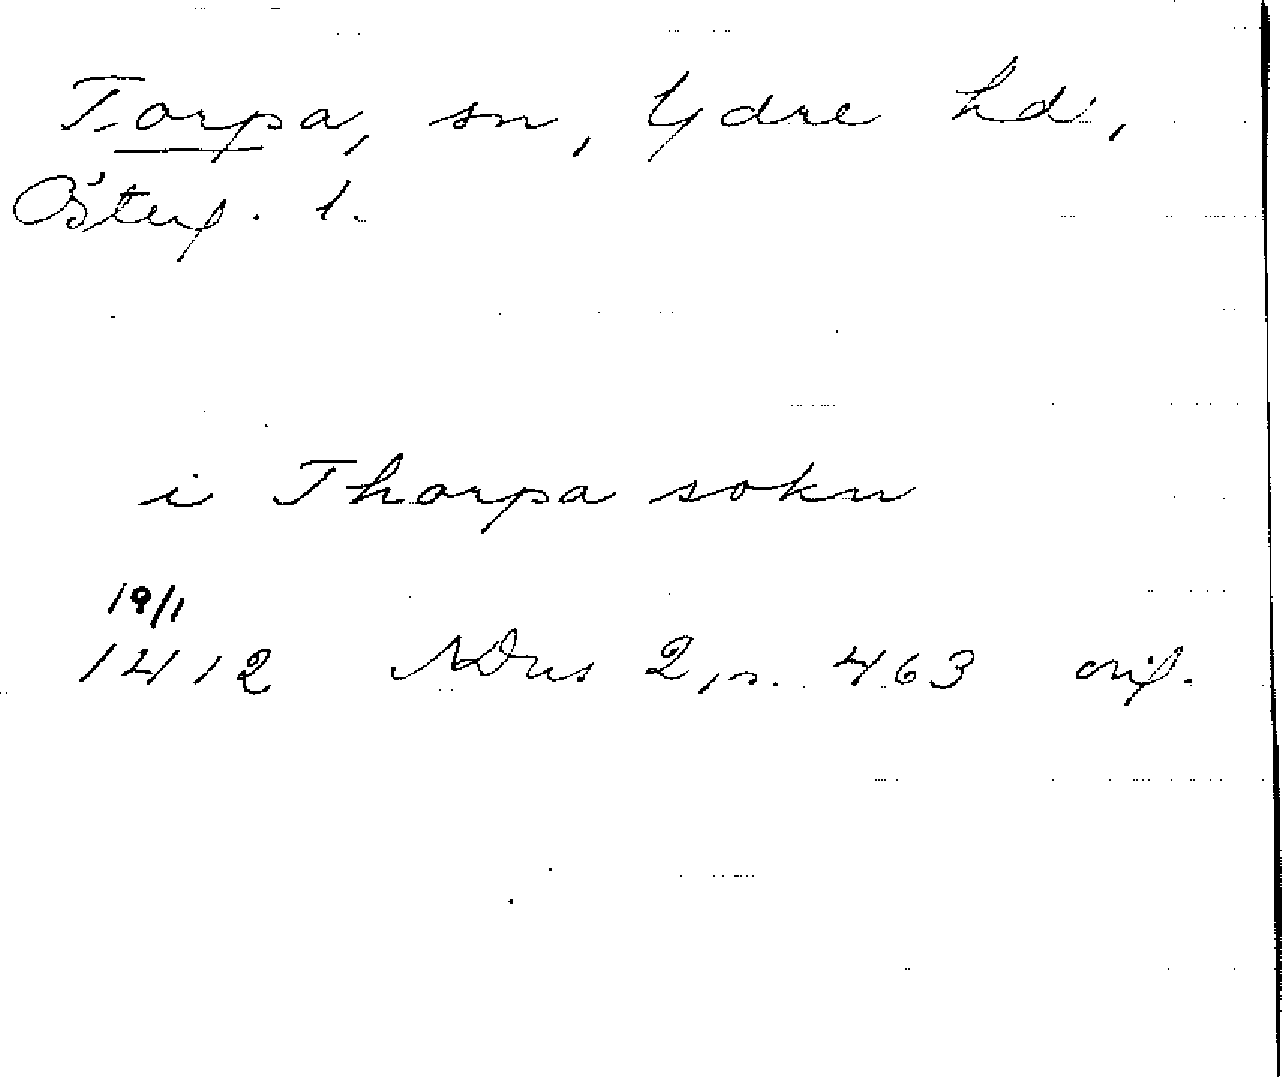 Torpa, sn, Ydre hd,
Österg. l.
i Thorpa sokn
19/1
1412 SDns 2, s. 463 orig.